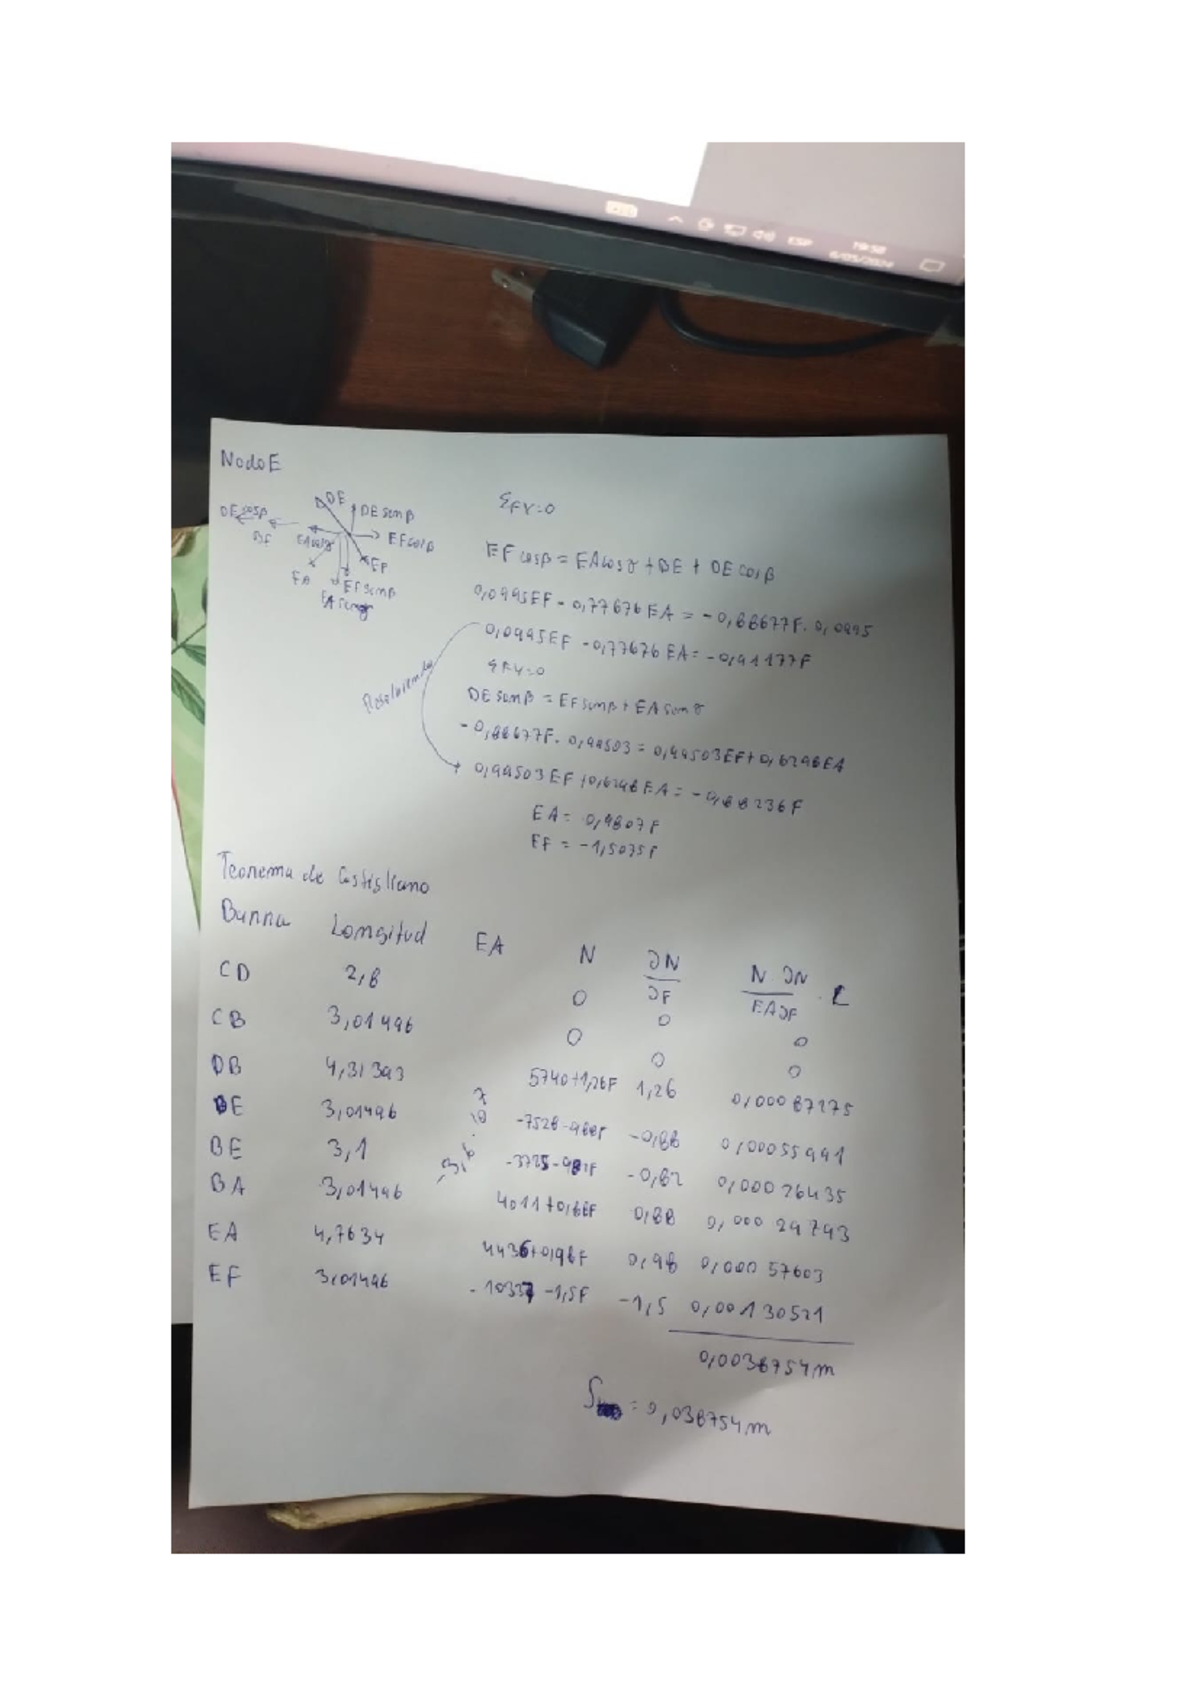 ESP
19:50
6/05/2024
Nodo E
DE
DE senβ
DE cosβ
EF cosβ
EA cosγ
EF
EA
EF senβ
EA senγ
ΣFX=0
EF cosβ = EA cosγ + BE + DE cosβ
0,0995EF - 0,77676EA = -0,88677F. 0,0995
0,0995EF - 0,77676EA = -0,91177F
ΣFY=0
Resolviendo
DE senβ = EF senβ + EA senγ
-0,88677F. 0,99503 = 0,99503EF + 0,6298EA
0,99503EF + 0,6298EA = -0,88236F
EA = 0,9807F
EF = -1,5035F
Teorema de Castigliano
Barra Longitud EA N ∂N/∂F N.∂N/EA∂F . L
CD 2,8 0 0 0
CB 3,01496 0 0 0
DB 4,31393 5740+1,26F 1,26 0,00087275
DE 3,01496 -7528-988F -0,88 0,00055991
BE 3,1 -3725-982F -0,82 0,00026435
BA 3,01496 4011+0,88F 0,88 0,00029793
EA 4,7634 4436+0,98F 0,98 0,00057603
EF 3,01496 -10337-1,5F -1,5 0,00130521
3,6.10⁷
0,0038754m
= 0,038754m